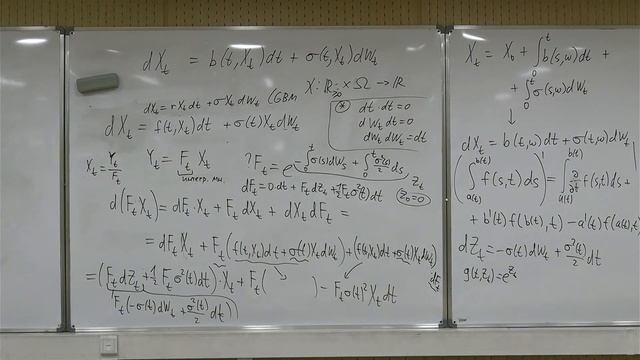 dX_t = b(t,X_t)dt + σ(t,X_t)dW_t
dX_t = rX_t dt + σX_t dW_t (GBM)
X: ℝ_{≥0} × Ω → ℝ
dX_t = f(t,X_t)dt + σ(t)X_t dW_t
(*) dt·dt = 0
dW_t dt = 0
dW_t dW_t = dt
X_t = Y_t/F_t
Y_t = F_t X_t
интегр. мн.
? F_t = e^{-∫_0^t σ(s)dW_s + ∫_0^t σ²(s)/2 ds} Z_t
dF_t = 0·dt + F_t dZ_t + 1/2 F_t σ²(t)dt (Z_0 = 0)
d(F_t X_t) = dF_t·X_t + F_t dX_t + dX_t dF_t =
= dF_t X_t + F_t(f(t,X_t)dt + σ(t)X_t dW_t) + (f(t,X_t)dt + σ(t)X_t dW_t) dF_t
= (F_t dZ_t + 1/2 F_t σ²(t)dt)·X_t + F_t( ) - F_t σ(t)² X_t dt
F_t(-σ(t)dW_t + σ²(t)/2 dt)
X_t = X_0 + ∫_0^t b(s,ω)dt +
+ ∫_0^t σ(s,ω)dW_t
↓
dX_t = b(t,ω)dt + σ(t,ω)dW_t
(∫_{a(t)}^{b(t)} f(s,t)ds)' = ∫_{a(t)}^{b(t)} ∂/∂t f(s,t)ds +
+ b'(t)f(b(t),t) - a'(t)f(a(t),t)
dZ_t = -σ(t)dW_t + σ²(t)/2 dt
g(t,Z_t) = e^{Z_t}